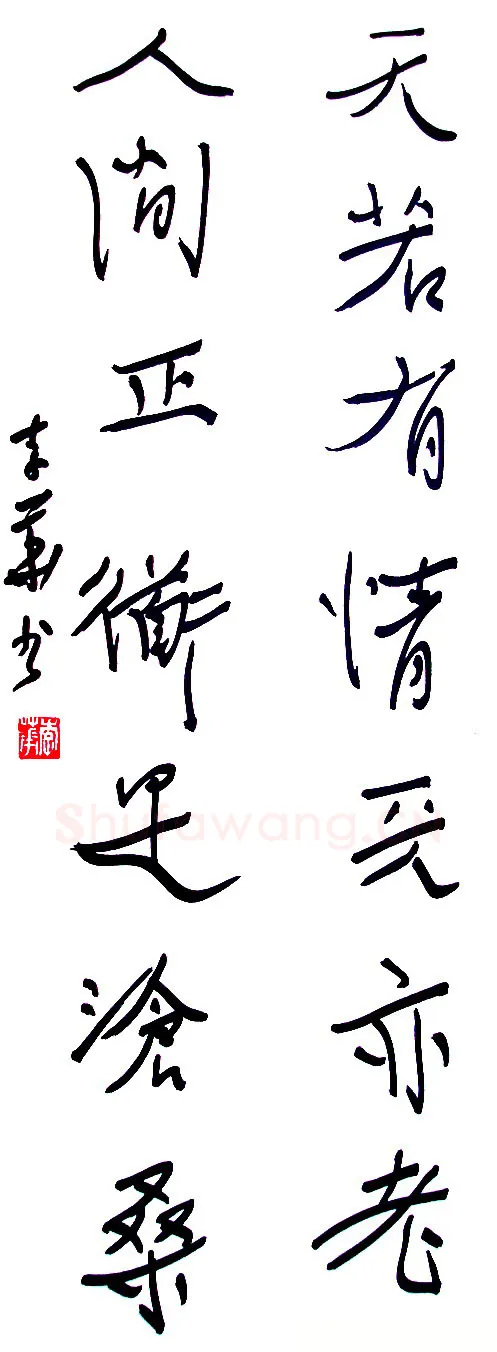 天若有情天亦老
人間正衜是滄桑
李華书
李華
Shufawang.CN